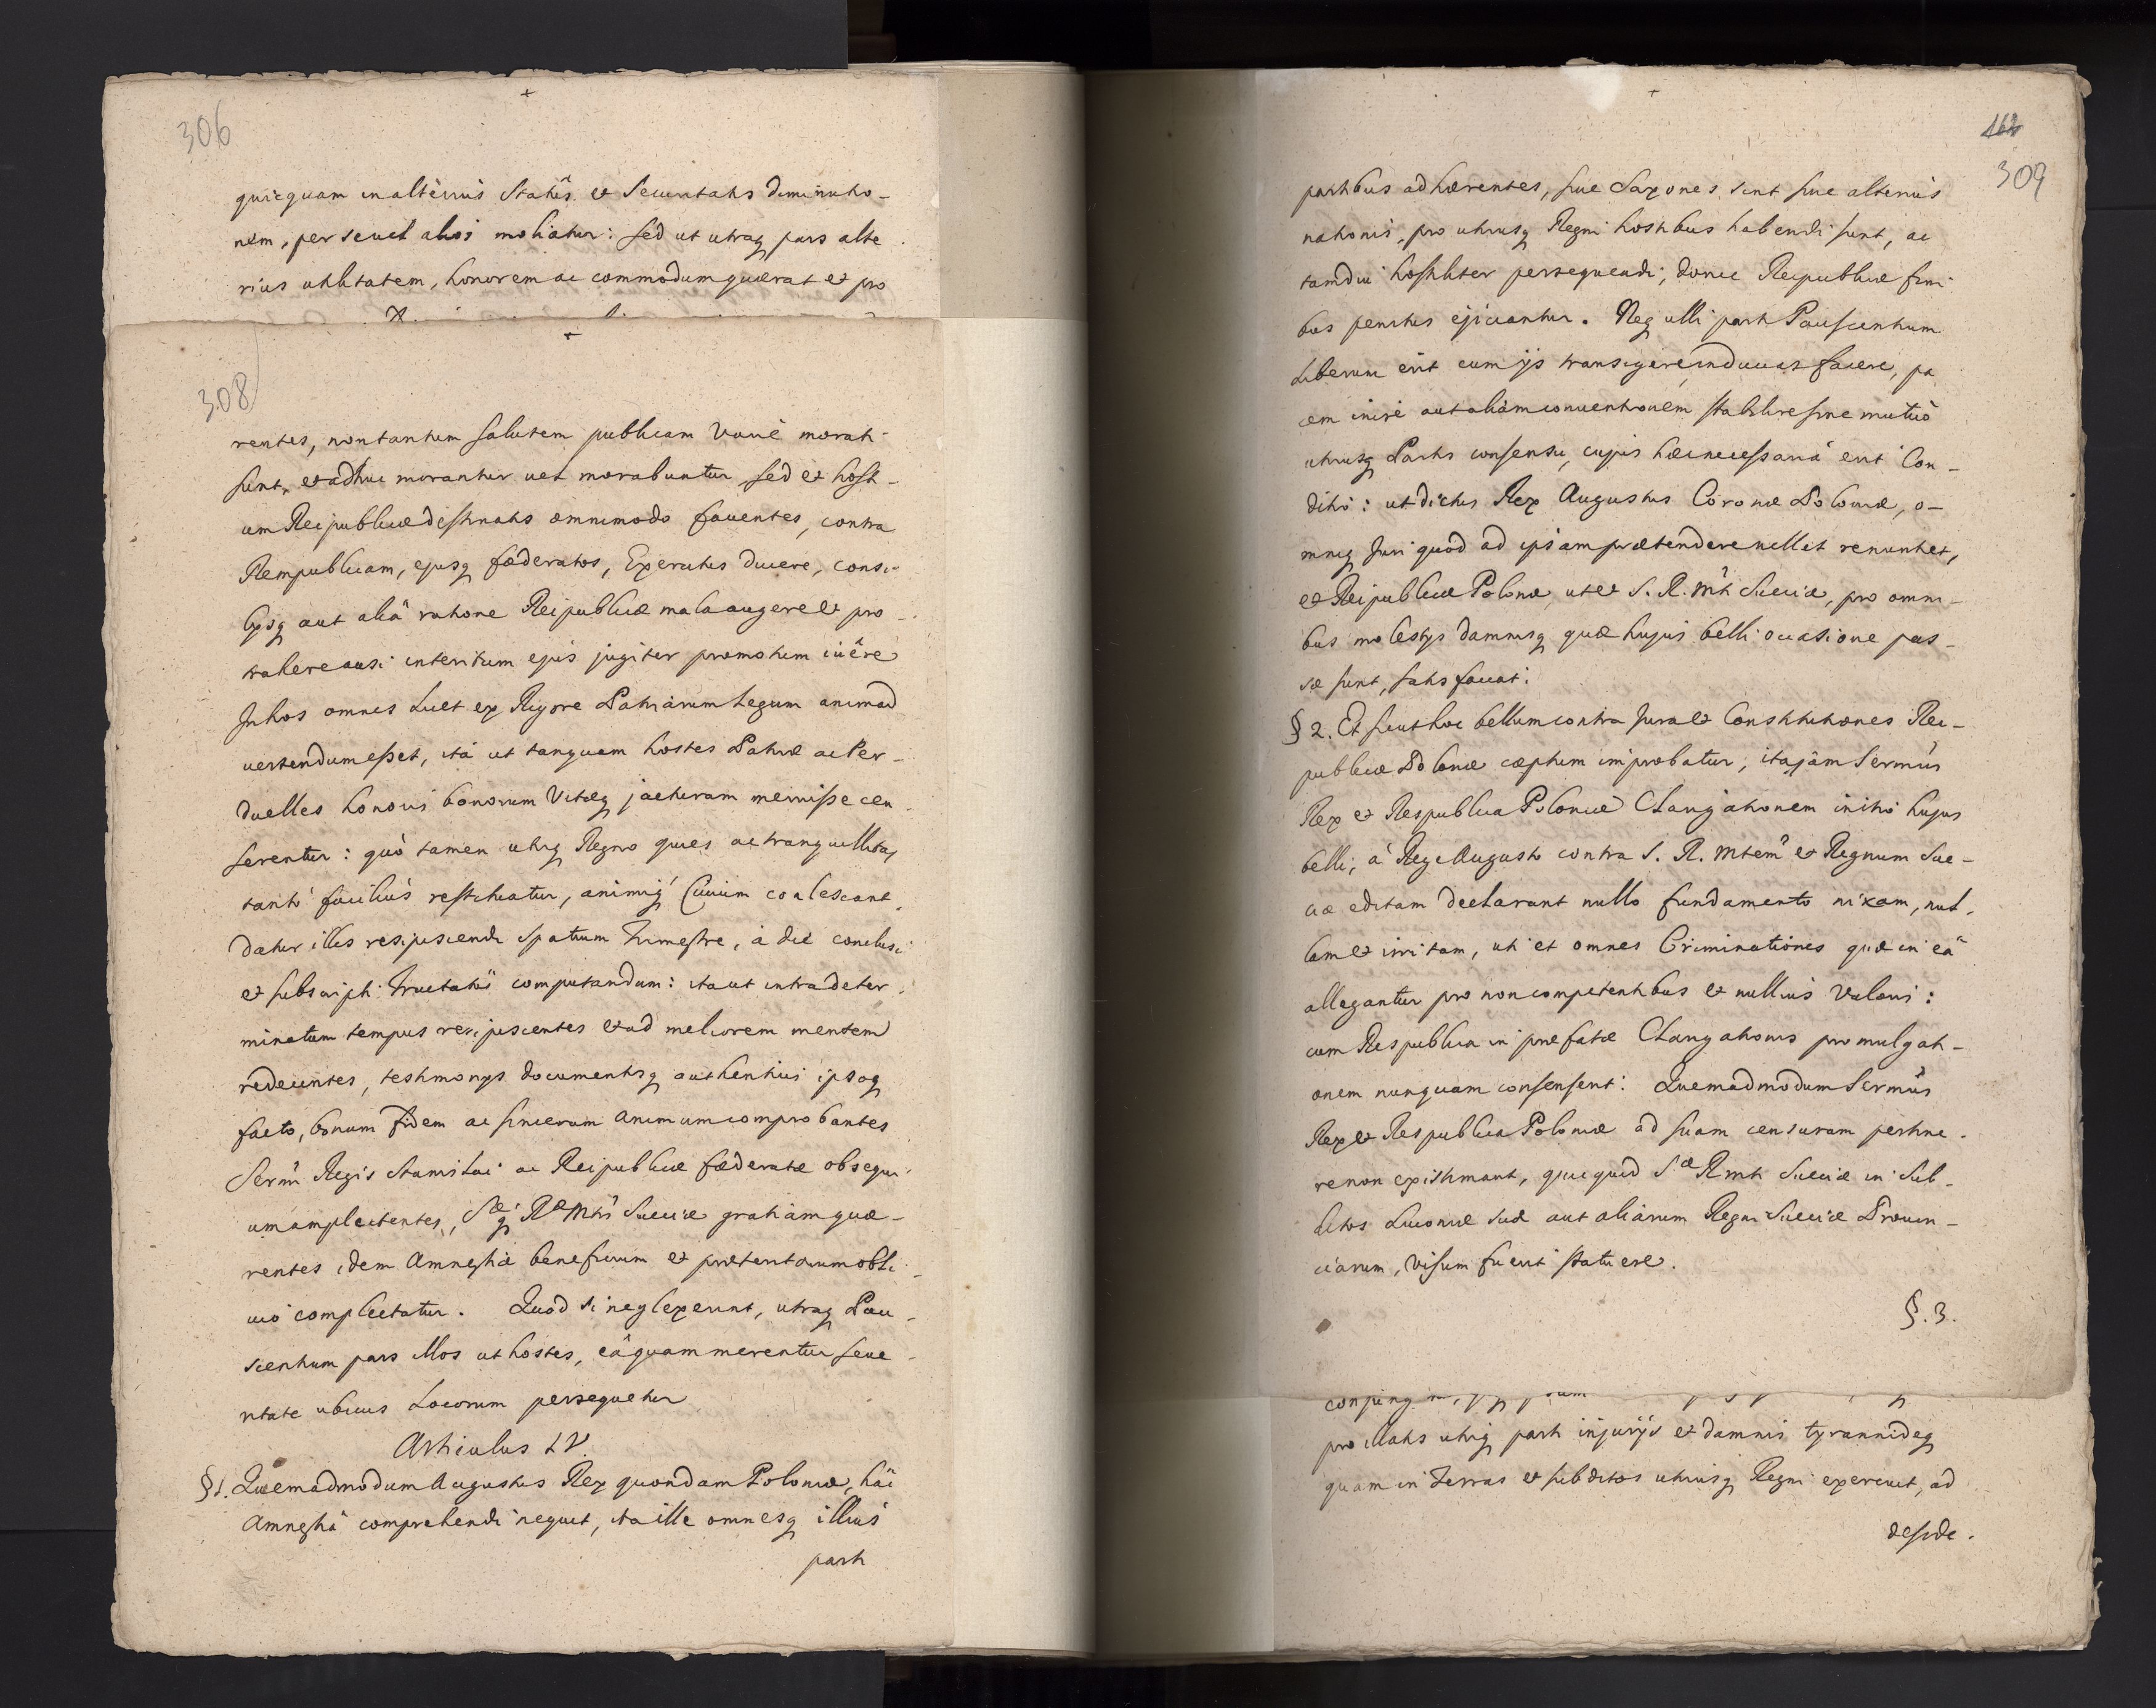 306
quicquam in alterius Statûs et Securitatis diminutio-
nem, per se vel alios moliatur: sed ut utraq pars alte
rius utilitatem, honorem ac commodum quærat et pro
308
rentes, non tantum salutem publicam varie morati
sunt, et adhuc morantur vel morabuntur, sed et hosti-
um Reipublicæ destinatis omnimodo faventes, contra
Rempublicam, ejusq fæderatos, Exercitus ducere, consi-
lijsq aut aliâ ratione Reipublicæ mala augere et pro-
trahere ausi interitum ejus jugiter promotum ivêre
In hos omnes Licet ex Rigore Patriarum legum animad
vertendum esset, ità ut tanquam hostes Patriæ ac Per-
duelles honoris bonorum Vitæq jacturam meruisse cen
serentur: quò tamen utriq Regno quies ac tranquillitas
tantò faciliùs restituatur, animiq Civium coalescant,
datur illis resipiscendi spatium trimestre, à die conclusi
et subscripti Tractatûs computandum: ita ut intra deter
minatum tempus resipiscentes et ad meliorem mentem
redeuntes, testimonijs documentisq authenticis ipsoq
facto, bonam fidem ac sincerum animum comprobantes
Sermi Regis Stanislai ac Reipublicæ fæderatæ obsequi
um amplectentes, Sæq Ræ Mtis Sueciæ gratiam quæ-
rentes idem Amnestiæ beneficium et præteritorum obli
vio complectatur. Quod si neglexerint, utraq Paci-
scentium pars illos ut hostes, eâ quam merentur seve
ritate ubivis Locorum persequetur
Articulus LV.
§ 1. Quemadmodum Augustus Rex quondam Poloniæ, hâc
Amnestiâ comprehendi nequit, ita ille omnesq illius
parti
168
309
partibus adhærentes, sive Saxones sint sive alterius
nationis, pro utriusq Regni hostibus habendi sunt, ac
tamdiu hostiliter persequendi, donec Reipublicæ fini
bus penitus ejiciantur. Neq ulli parti Paciscentium
Liberum erit cum ijs transigere, inducias facere, pa
cem inire aut aliam conventionem stabilire sine mutuo
utriusq Partis consensu, cujus hæc necessaria erit Con-
ditio: ut dictus Rex Augustus Coronæ Poloniæ, o-
mniq Juri quod ad ipsam prætendere vellet renuntiet,
et Reipublicæ Polonæ, ut et S. R. Mti Sueciæ, pro omni-
bus molestijs damnisq quæ hujus belli occasione pas-
sæ sunt, satisfaciat.
§ 2. Et sicut hoc bellum contra Jura et Constitutiones Rei-
publicæ Polonæ cæptum improbatur, ita jàm Sermus
Rex et Respublica Poloniæ Clarigationem initio hujus
belli, à Rege Augusto contra S. R. Mtem et Regnum Sue-
ciæ editam declarant nullo fundamento nixam, nul-
lam et irritam, uti et omnes Criminationes quæ in eâ
allegantur pro non competentibus et nullius Valoris:
cum Respublica in præfatæ Clarigationis promulgati-
onem nunquam consenserit: Quemadmodum Sermus
Rex et Respublica Poloniæ ad suam censuram pertine-
re non existimant, quicquid Sæ R Mti Sueciæ in Sub-
ditos Livoniæ suæ aut aliarum Regni Sueciæ Provin-
ciarum, visum fuerit statuere.
§. 3.
pro illatis utriq parti injurijs et damnis tyrannideq
quam in Terras et subditos utriusq Regni exercuit, ad
deside.